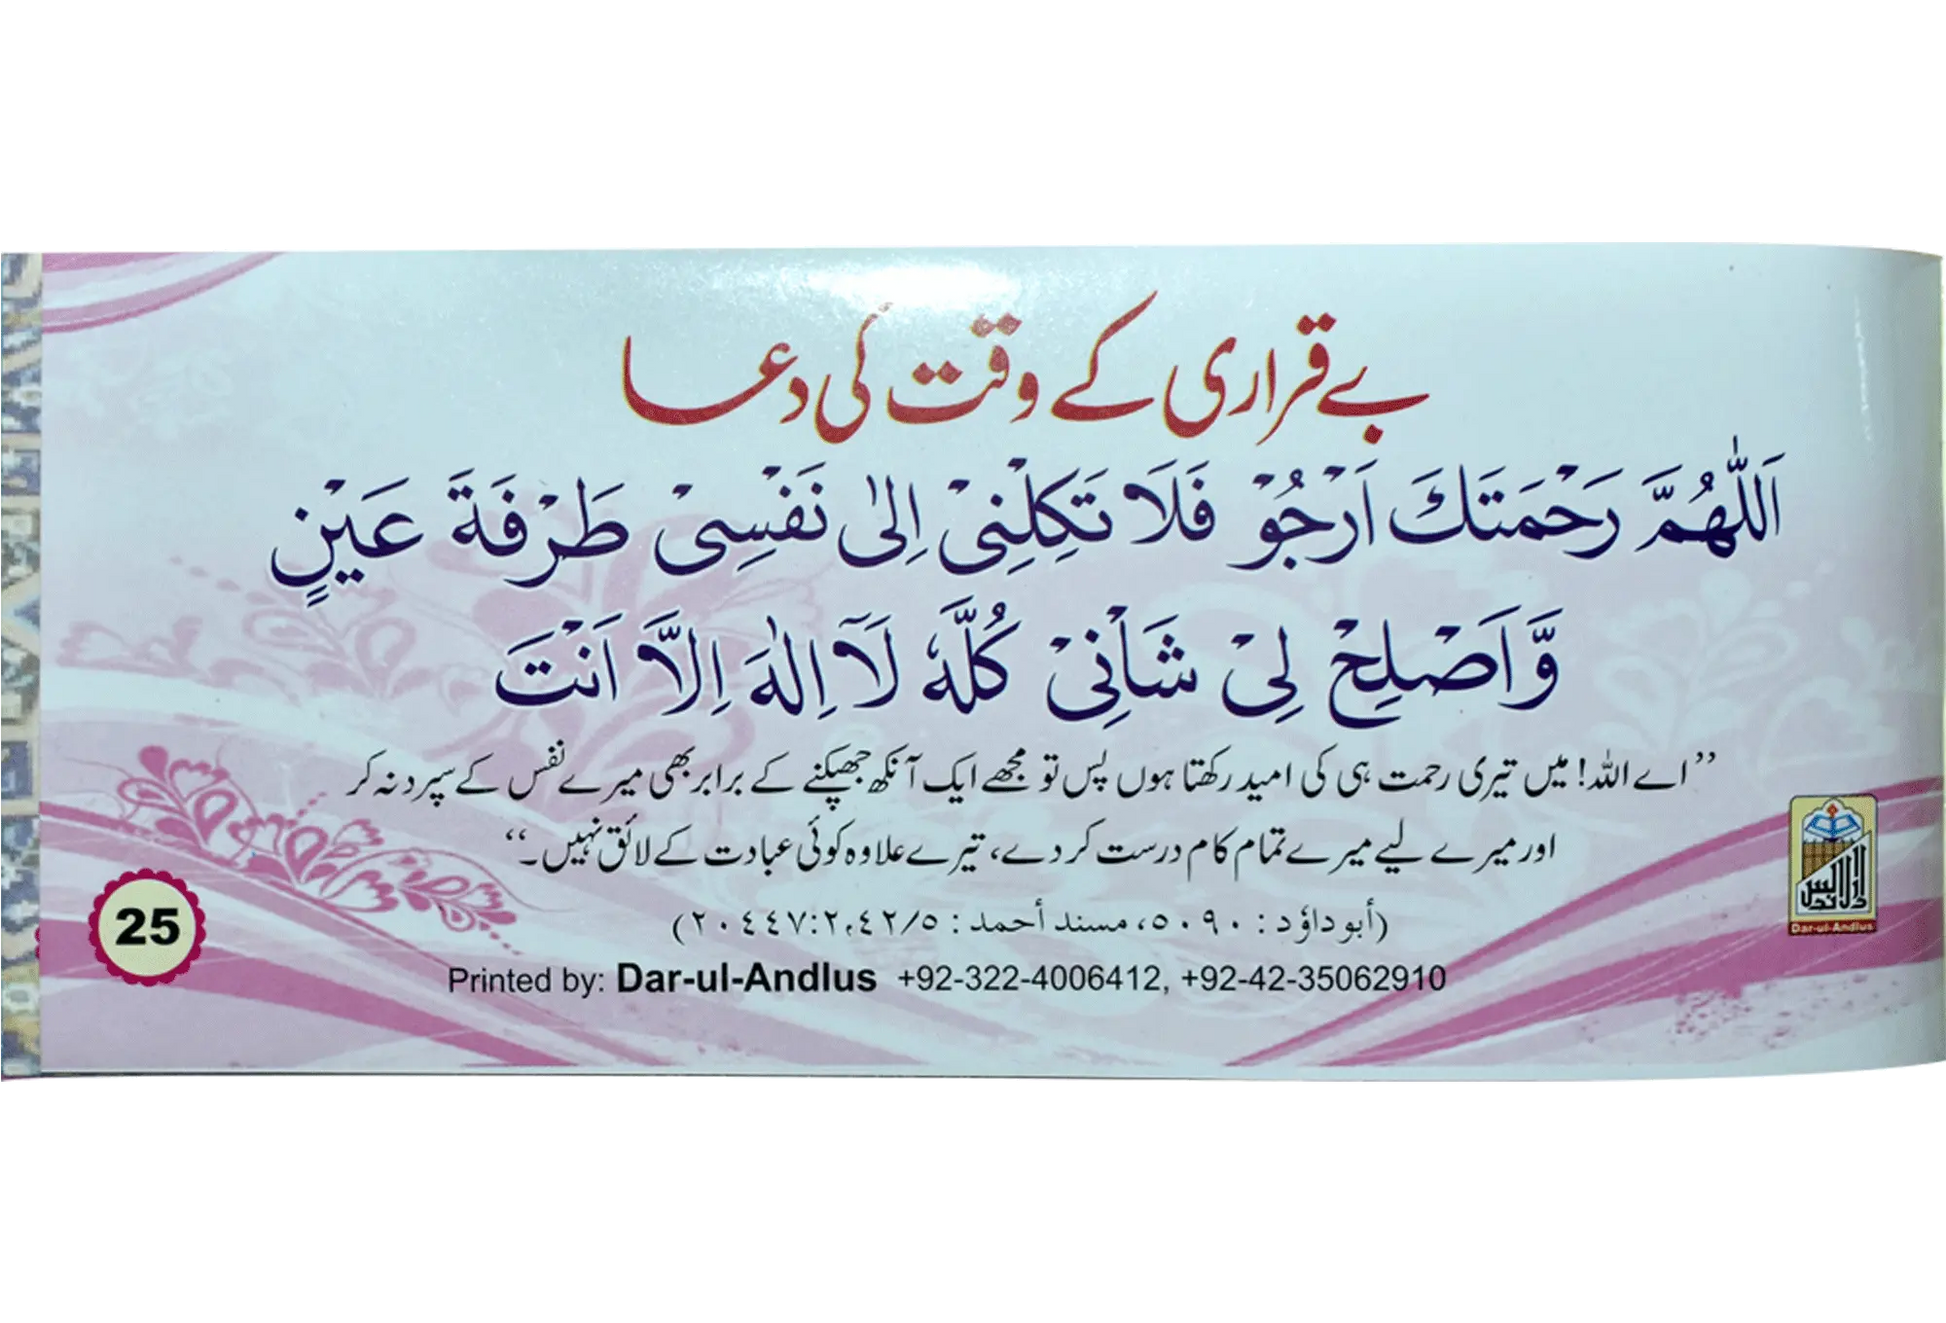 بے قراری کے وقت کی دعا
اَللّٰهُمَّ رَحْمَتَكَ اَرْجُوْ فَلَا تَكِلْنِیْ اِلٰی نَفْسِیْ طَرْفَةَ عَیْنٍ
وَّاَصْلِحْ لِیْ شَاْنِیْ كُلَّهٗ لَآ اِلٰهَ اِلَّا اَنْتَ
’’اے اللہ! میں تیری رحمت ہی کی امید رکھتا ہوں پس تو مجھے ایک آنکھ جھپکنے کے برابر بھی میرے نفس کے سپرد نہ کر
اور میرے لیے میرے تمام کام درست کر دے، تیرے علاوہ کوئی عبادت کے لائق نہیں۔‘‘
(أبو داؤد: ٥٠٩٠، مسند أحمد: ٤٢/٥،٢:٢٠٤٤٧)
Printed by: Dar-ul-Andlus +92-322-4006412, +92-42-35062910
25
دارالاندلس
Dar-ul-Andlus